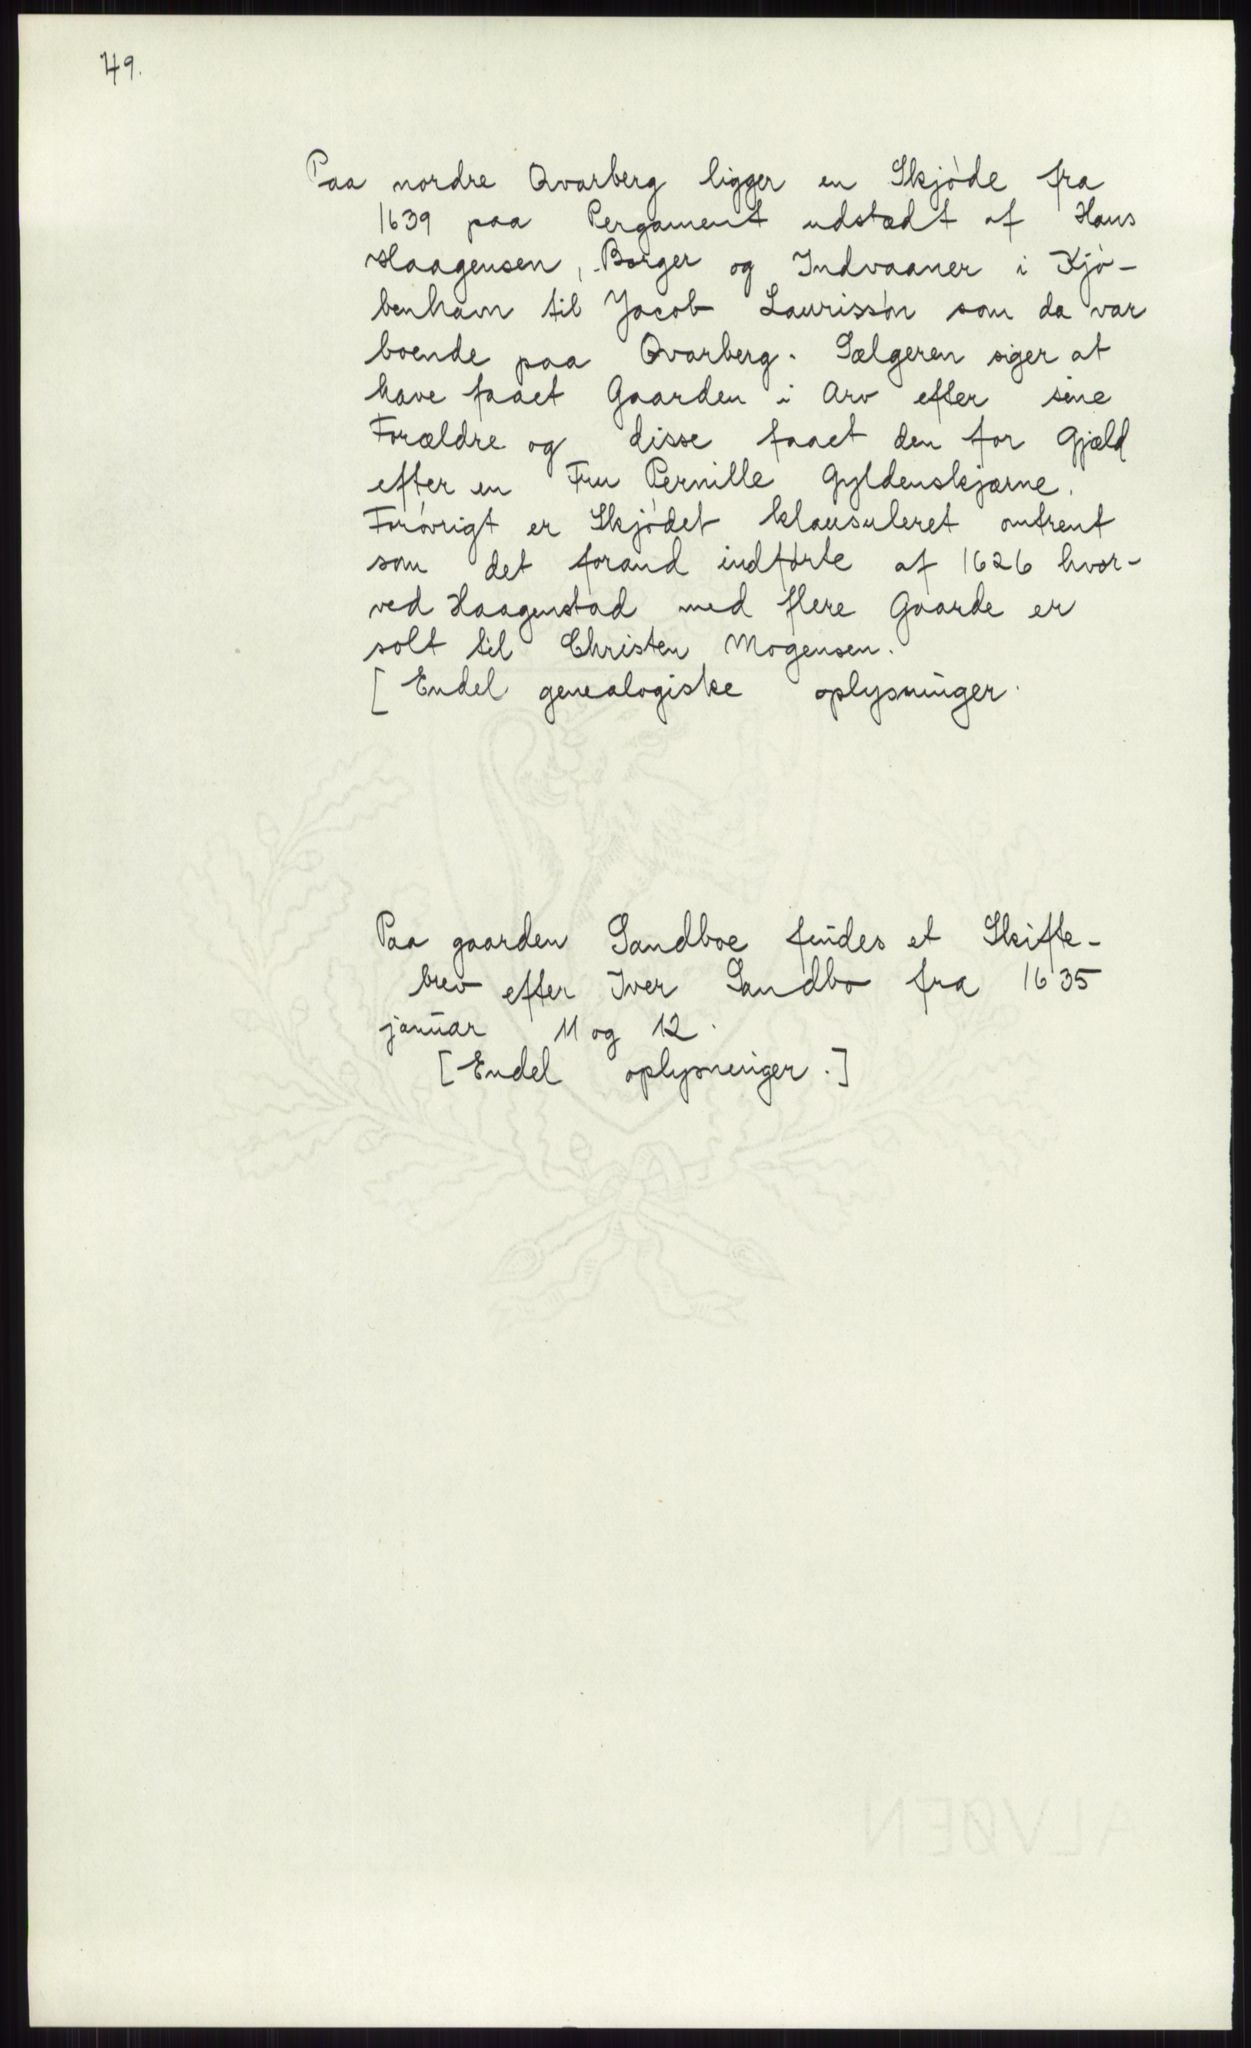 49.
Paa nordre Qvarberg ligger en Skjøde fra
1639 paa Pergament udstædt af Hans
Haagensen, Borger og Indvaaner i Kjø-
benhavn til Jacob Laurissøn som da var
boende paa Qvarberg. Sælgeren siger at
have faaet Gaarden i Arv efter sine
Forældre og disse faaet den for Gjæld
efter en Fru Pernille Gyldenskjærne.
Forøvrigt er Skjødet klausuleret omtrent
som det forand indførte af 1626 hvor-
ved Haagenstad med flere Gaarde er
solt til Christen Mogensen.
[Endel genealogiske oplysninger.
Paa gaarden Sandboe findes et Skifte-
brev efter Iver Sandbo fra 1635
januar 11 og 12.
[Endel oplysninger.]
ALVØEN